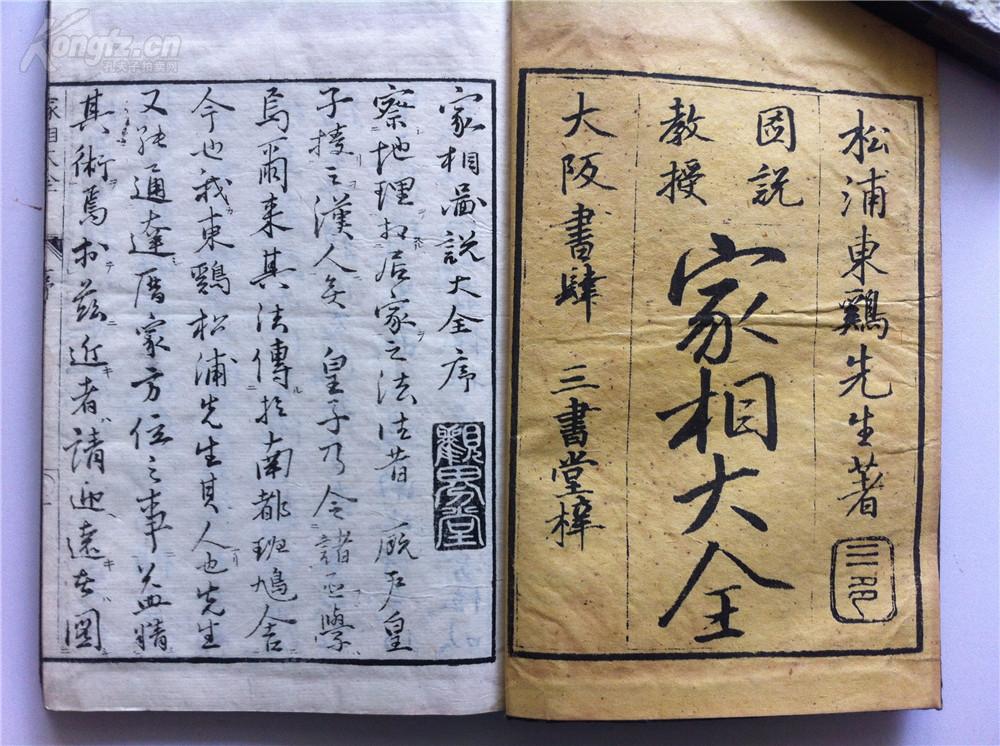 松浦東鷄先生著
図説
教授
家相大全
大阪書肆 三書堂梓
家相啚説大全序
察地理相居家之法往昔 厩戸皇
子授之漢人矣 皇子乃令諸臣學
焉爾来其法傳於南都班鳩舍
今也我東鷄松浦先生其人也先生
又能通達厝家方位之事益精
其術焉於兹近者請迎遠者圖
觀豸堂
家相大全
序
Kongfz.cn
孔夫子拍卖网